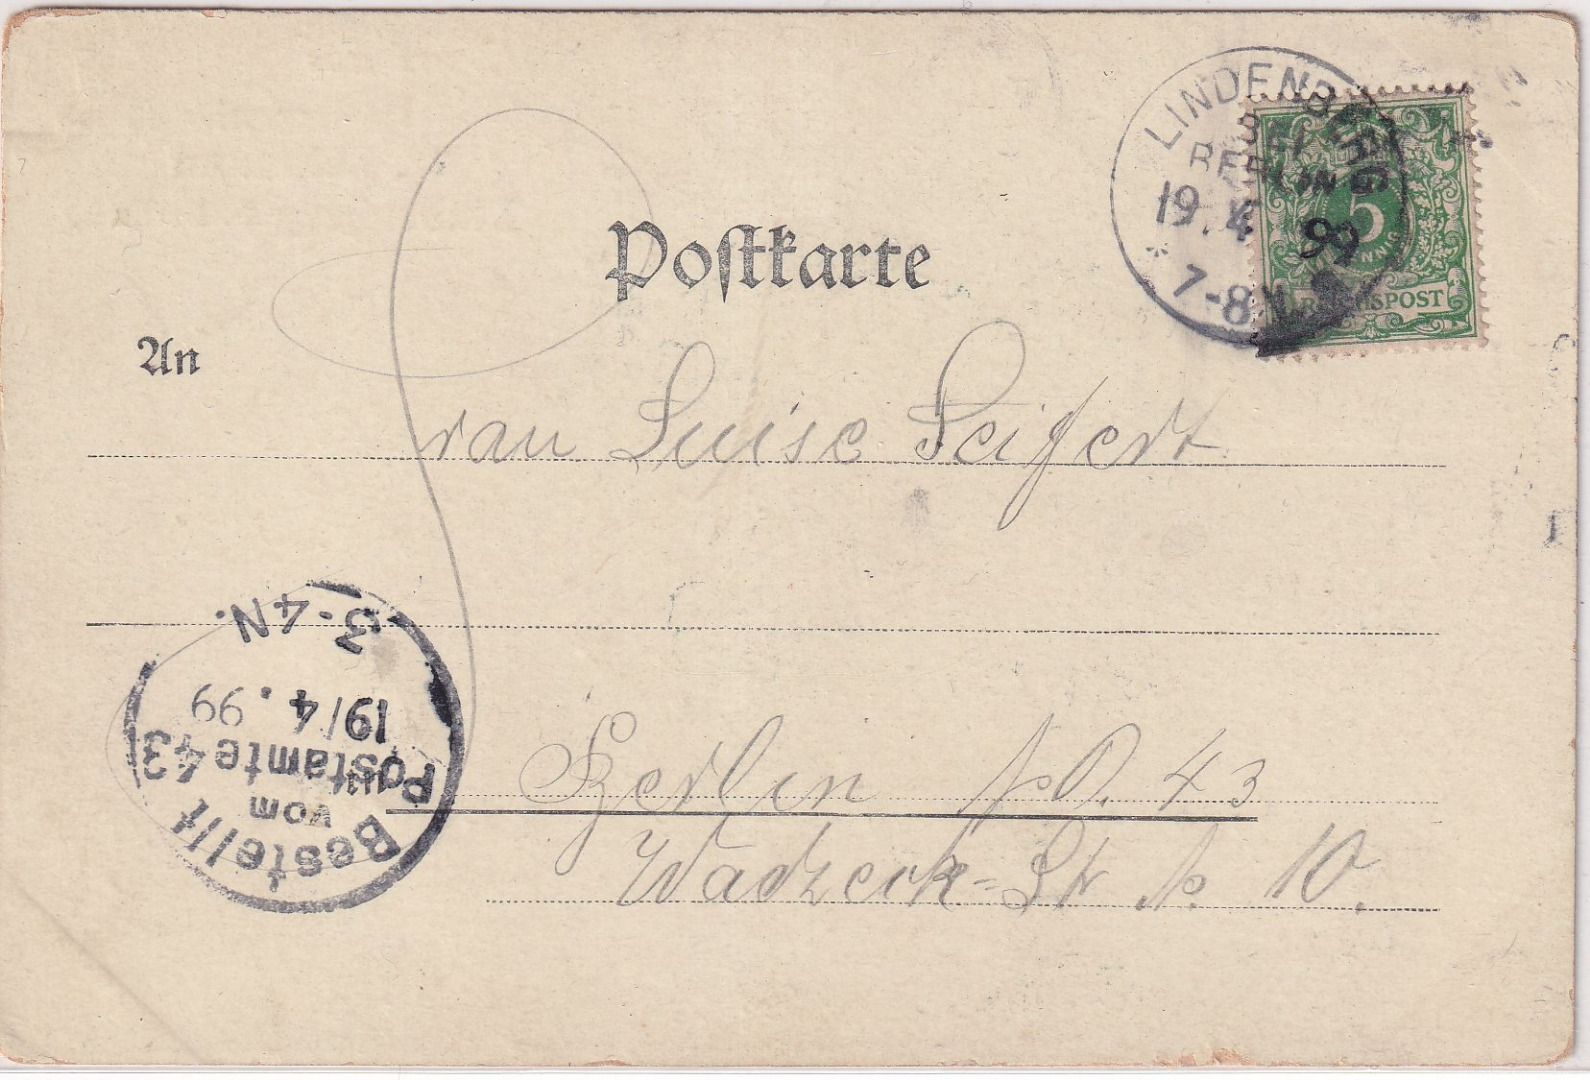 LINDENBERG
BEI
BERLIN
19. 4. 99
7-8 V.
5
PFENNIG
REICHSPOST
Postkarte
An
Frau Luise Seifert
Berlin NO. 43
Wadzeck-Str. No. 10.
Bestellt
vom
Postamte 43
19/4. 99
3-4 N.